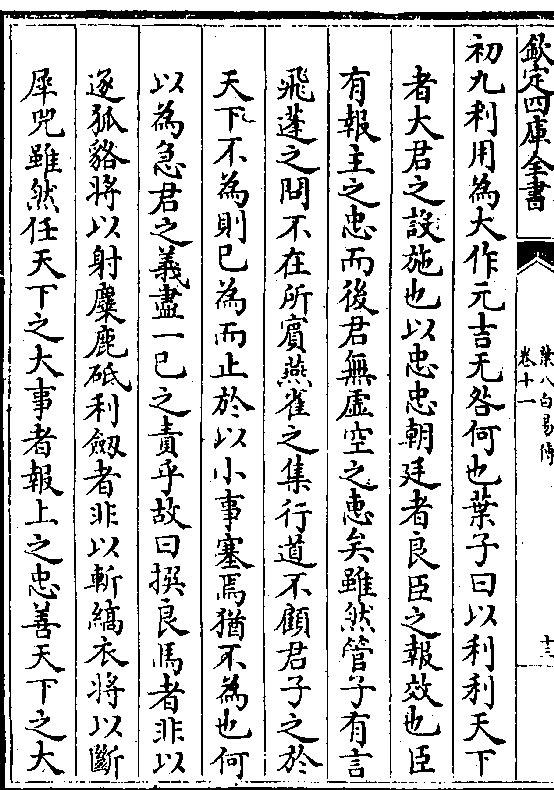 欽定四庫全書
葉八白易傳
卷十一
十三
初九利用為大作元吉无咎何也葉子曰以利利天下
者大君之設施也以忠忠朝廷者良臣之報效也臣
有報主之忠而後君無虛空之惠矣雖然管子有言
飛蓬之問不在所賔燕雀之集行道不顧君子之於
天下不為則已為而止於以小事塞焉猶不為也何
以為急君之義盡一已之責乎故曰撰良馬者非以
逐狐貉將以射麋鹿砥利劔者非以斬縞衣將以斷
犀兕雖然任天下之大事者報上之忠善天下之大